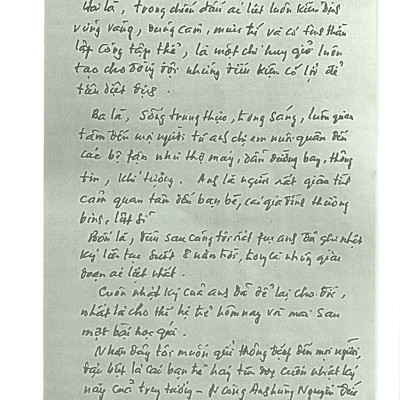 Hai là, trong chiến đấu ác liệt luôn kiên định
vững vàng, dũng cảm, mưu trí và có tinh thần
lập công tập thể, là một chỉ huy giỏi luôn
tạo cho đồng đội những điều kiện có lợi để
tiêu diệt địch.
Ba là, sống trung thực, trong sáng, luôn quan
tâm đến mọi người từ anh chị em nuôi quân đến
các bộ phận như thợ máy, dẫn đường bay, thông
tin, khí tượng. Anh là người rất giàu tình
cảm quan tâm đến bạn bè, cả gia đình thương
binh, liệt sĩ
Bốn là, điều sau cùng tôi rất phục anh đã ghi nhật
ký liên tục suốt 8 năm trời, trong cả những giai
đoạn ác liệt nhất.
Cuốn nhật ký của anh đã để lại cho đời,
nhất là cho thế hệ trẻ hôm nay và mai sau
một bài học quí.
Nhân đây tôi muốn gửi thông điệp đến mọi người,
đặc biệt là các bạn trẻ hãy tìm đọc cuốn nhật ký
này của trung tướng - Anh hùng Nguyễn Đức